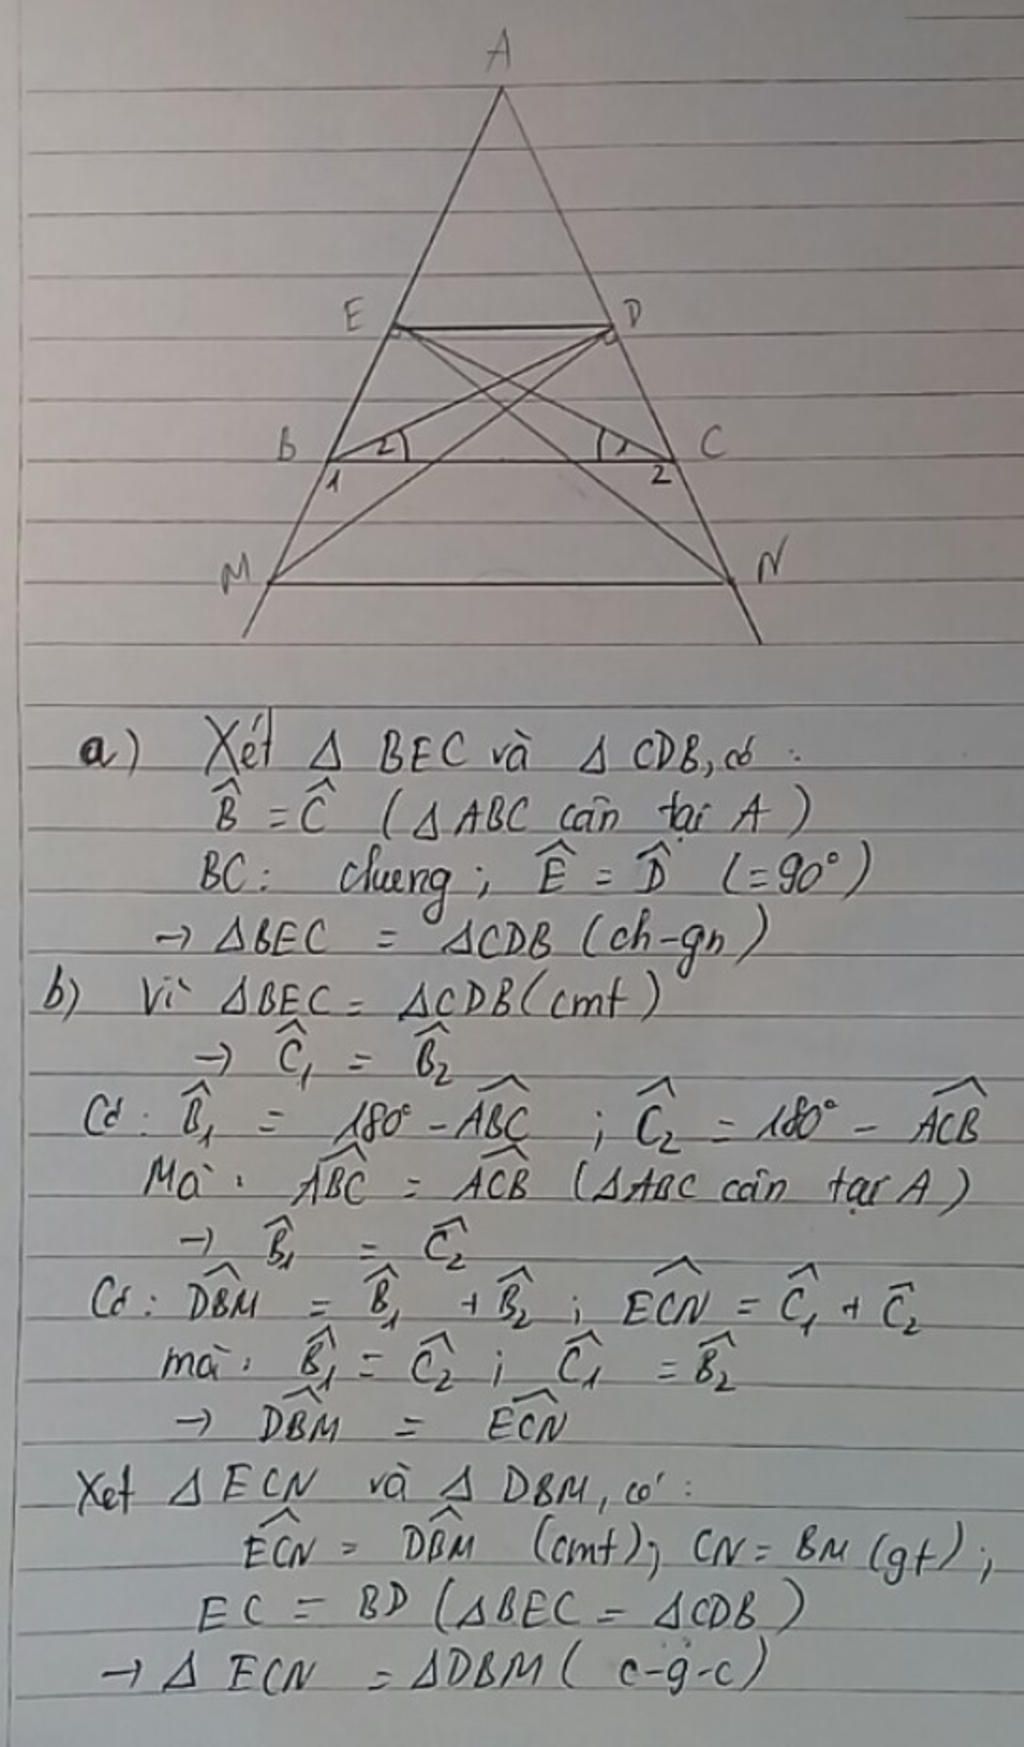 A
E D
B 2 1 C
1 2
M N
a) Xét Δ BEC và Δ CDB, có :
B̂ = Ĉ (Δ ABC cân tại A)
BC : chung ; Ê = D̂ (=90°)
→ ΔBEC = ΔCDB (ch-gn)
b) Vì ΔBEC = ΔCDB (cmt)
→ Ĉ₁ = B̂₂
Có : B̂₁ = 180° - ABĈ ; Ĉ₂ = 180° - ACB̂
Mà : ABĈ = ACB̂ (ΔABC cân tại A)
→ B̂₁ = Ĉ₂
Có : DBM̂ = B̂₁ + B̂₂ ; ECN̂ = Ĉ₁ + Ĉ₂
mà : B̂₁ = Ĉ₂ ; Ĉ₁ = B̂₂
→ DBM̂ = ECN̂
Xet Δ ECN và Δ DBM, có :
ECN̂ = DBM̂ (cmt) ; CN = BM (gt) ;
EC = BD (ΔBEC = ΔCDB)
→ Δ ECN = ΔDBM ( c-g-c)